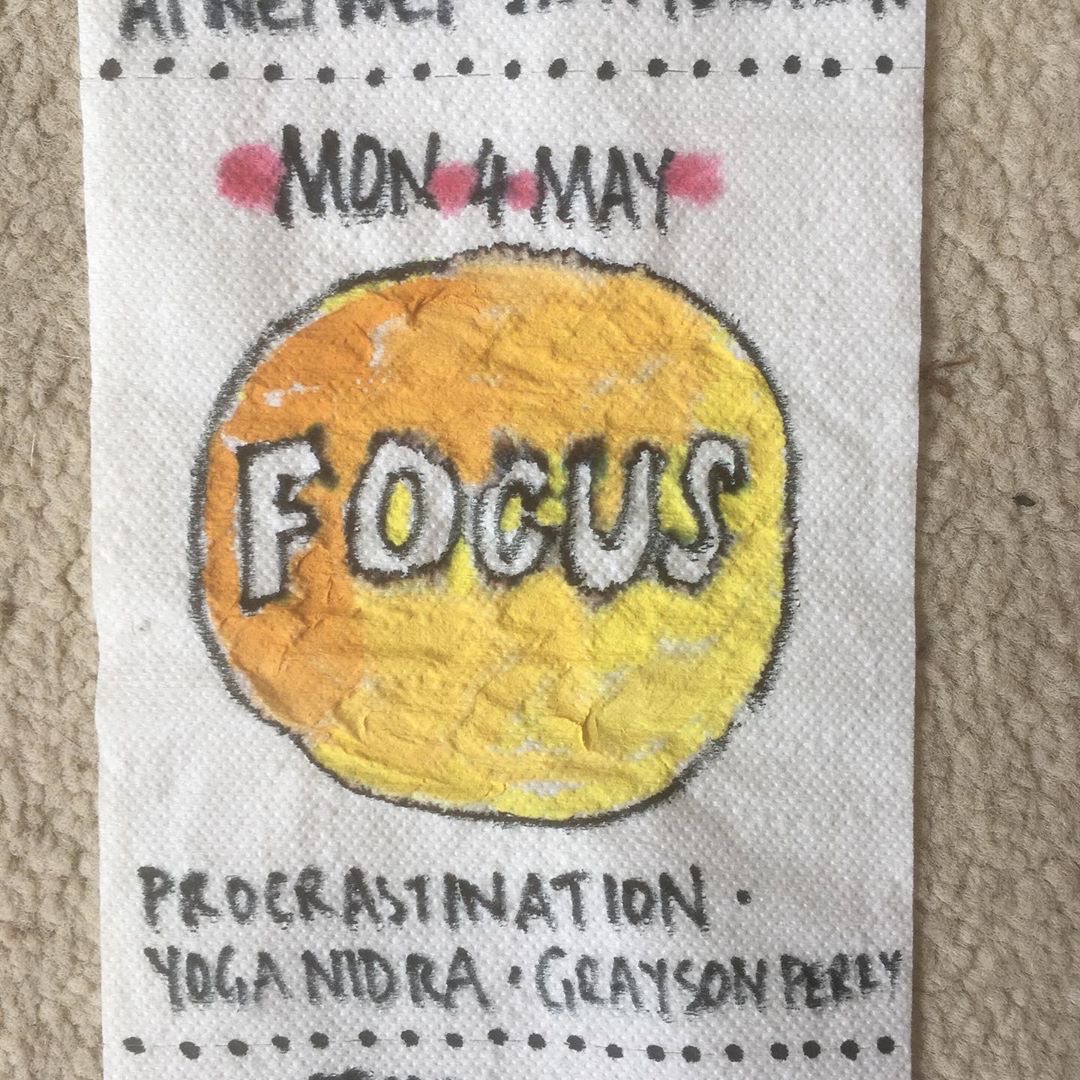 MON 4 MAY
FOCUS
PROCRASTINATION •
YOGA NIDRA • GRAYSON PERRY